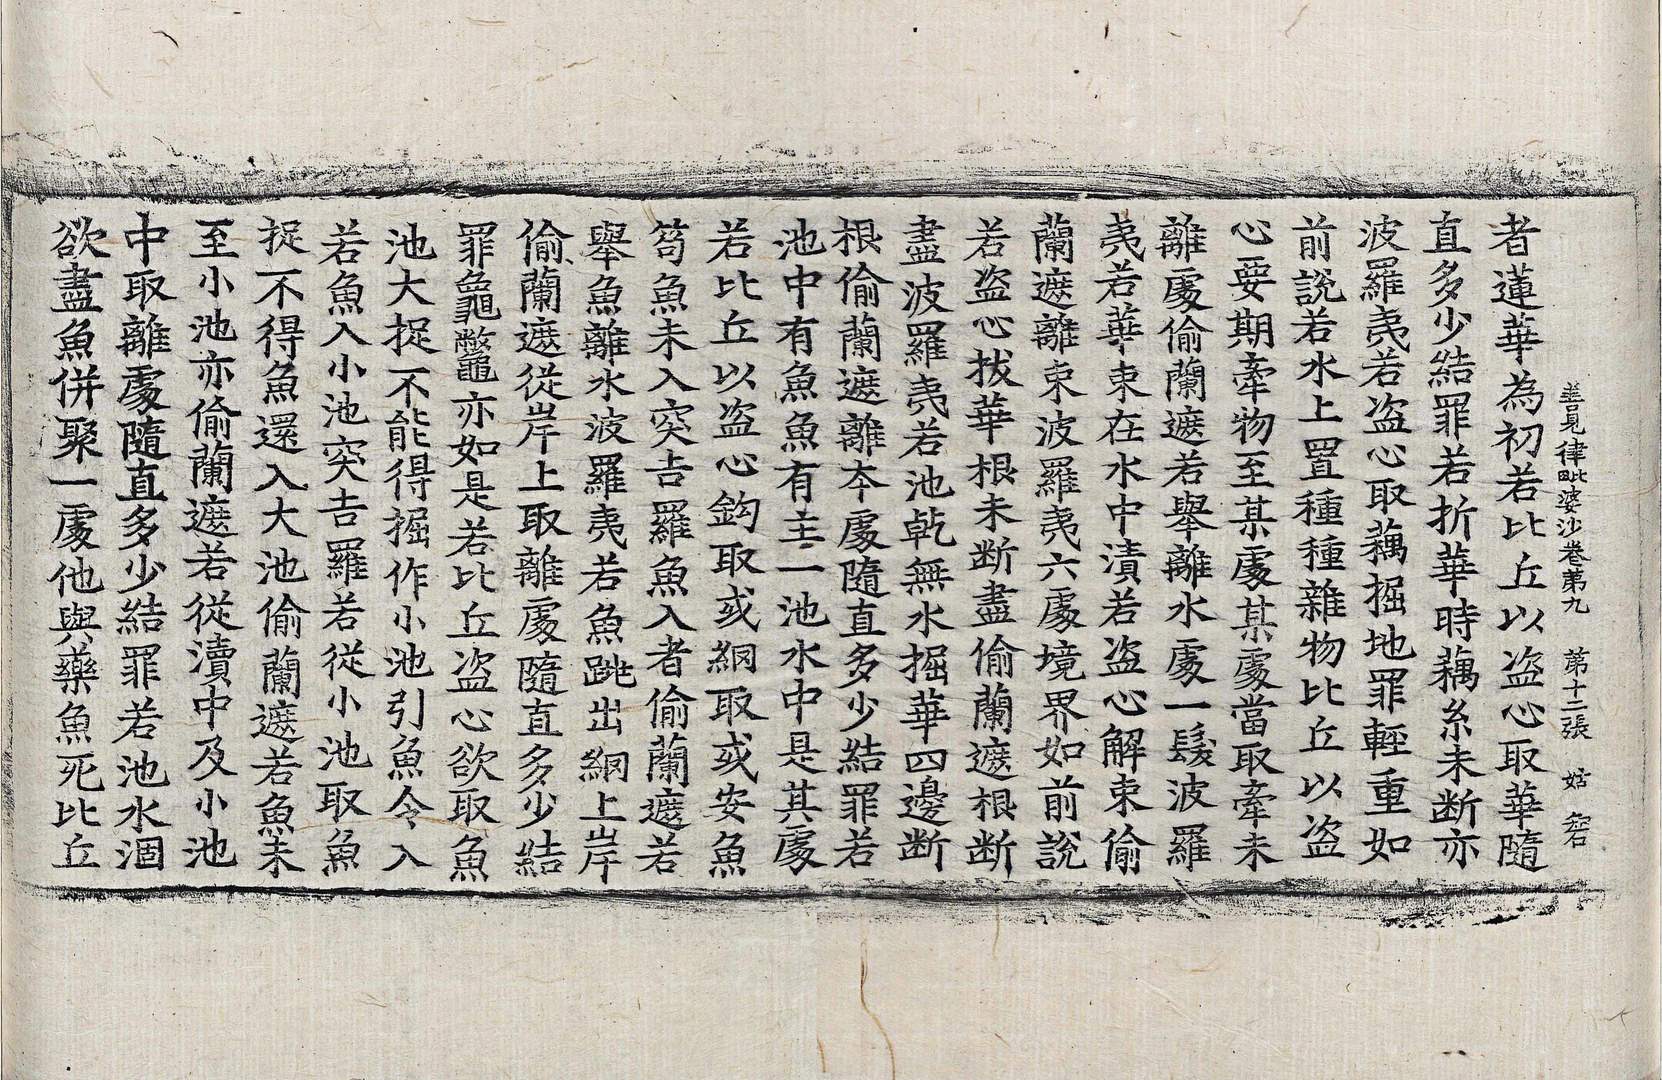 善見律毗婆沙卷第九　第十二張　姑
者蓮華為初若比丘以盗心取華隨
直多少結罪若折華時藕糸未断亦
波羅夷若盗心取藕掘地罪輕重如
前說若水上置種種雜物比丘以盗
心要期牽物至某處某處當取牽未
離處偷蘭遮若舉離水處一髮波羅
夷若華束在水中漬若盗心解束偷
蘭遮離束波羅夷六處境界如前說
若盗心拔華根未断盡偷蘭遮根断
盡波羅夷若池乹無水掘華四邊断
根偷蘭遮離夲處隨直多少結罪若
池中有魚魚有主一池水中是其處
若比丘以盗心鈎取或網取或安魚
笱魚未入突吉羅魚入者偷蘭遮若
舉魚離水波羅夷若魚跳出網上岸
偷蘭遮從岸上取離處隨直多少結
罪龜鼈亦如是若比丘盗心欲取魚
池大捉不能得掘作小池引魚令入
若魚入小池突吉羅若從小池取魚
捉不得魚還入大池偷蘭遮若魚未
至小池亦偷蘭遮若從瀆中及小池
中取離處隨直多少結罪若池水涸
欲盡魚併聚一處他與藥魚死比丘